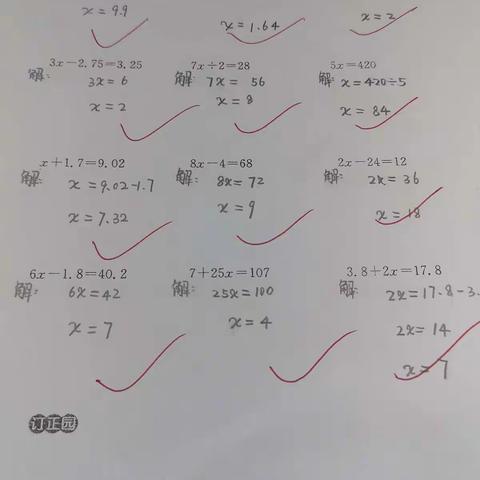 x=9.9
x=1.64
x=2
3x-2.75=3.25
解: 3x=6
x=2
7x÷2=28
解: 7x= 56
x=8
5x=420
解: x=420÷5
x=84
x+1.7=9.02
解: x=9.02-1.7
x=7.32
8x-4=68
解: 8x=72
x=9
2x-24=12
解: 2x=36
x=18
6x-1.8=40.2
解: 6x=42
x=7
7+25x=107
解: 25x=100
x=4
3.8+2x=17.8
解: 2x=17.8-3.
2x=14
x=7
订正园